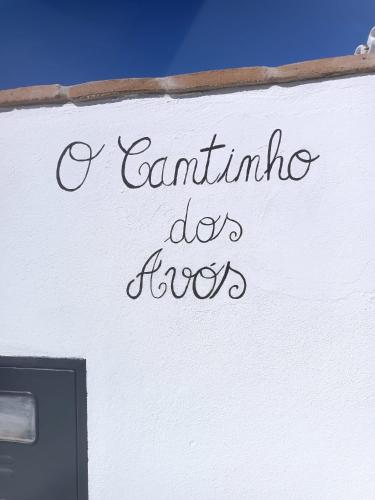 O Cantinho
dos
Avós